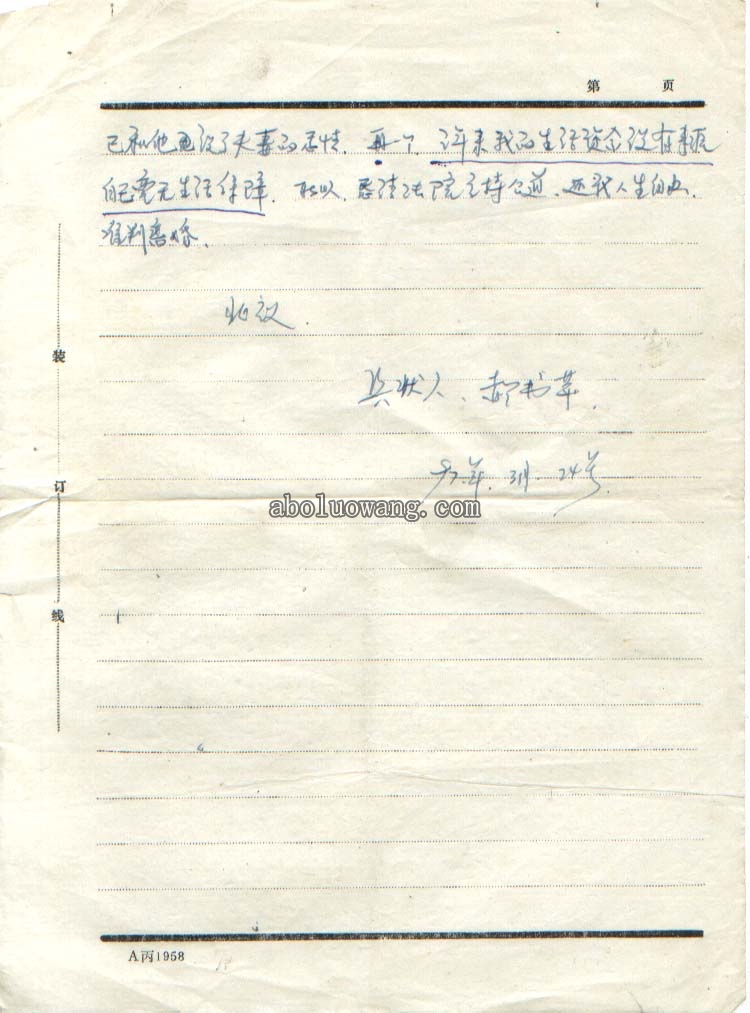 第 页
已和他也没了夫妻的感情. 再一个, 详来我的生活资金没有来源
自己毫无生活保障. 所以, 恳请法院主持公道. 还我人生自由.
准判离婚.
此致.
具状人、郝书苹.
92年. 3月. 24号.
aboluowang.com
装
订
线
A丙1958